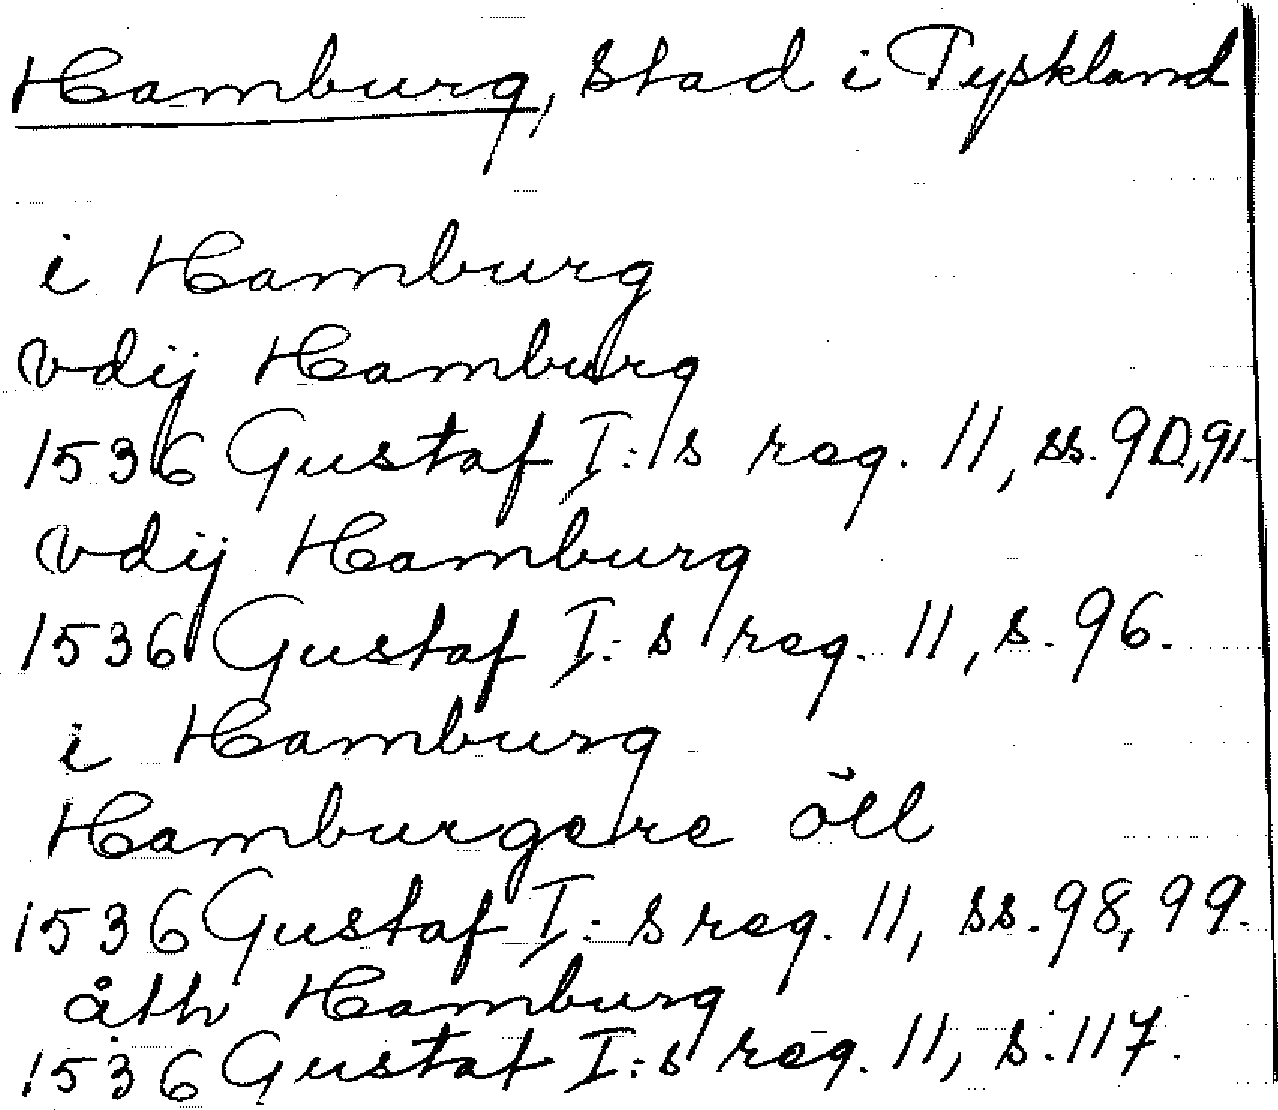 Hamburg, stad i Tyskland
i Hamburg
vdij Hamburg
1536 Gustaf I:s reg. 11, ss. 90, 91.
vdij Hamburg
1536 Gustaf I:s reg. 11, s. 96.
i Hamburg
Hamburgere öll
1536 Gustaf I:s reg. 11, ss. 98, 99.
åth Hamburg
1536 Gustaf I:s reg. 11, s. 117.